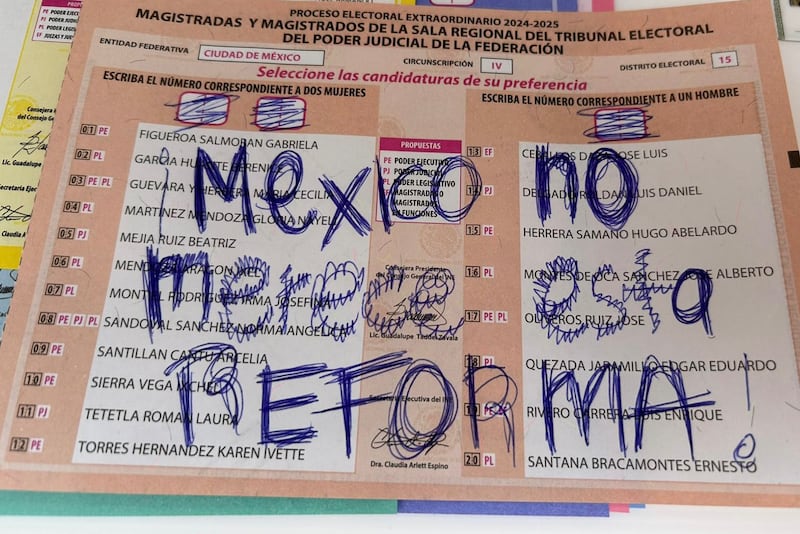 PROCESO ELECTORAL EXTRAORDINARIO 2024-2025
MAGISTRADAS Y MAGISTRADOS DE LA SALA REGIONAL DEL TRIBUNAL ELECTORAL
DEL PODER JUDICIAL DE LA FEDERACIÓN
ENTIDAD FEDERATIVA CIUDAD DE MÉXICO CIRCUNSCRIPCIÓN IV DISTRITO ELECTORAL 15
Seleccione las candidaturas de su preferencia
ESCRIBA EL NÚMERO CORRESPONDIENTE A DOS MUJERES
01 PE FIGUEROA SALMORAN GABRIELA
02 PL GARCIA HUANTE BERENICE
03 PE PL GUEVARA Y HERRERA MARIA CECILIA
04 PL MARTINEZ MENDOZA GLORIA NAYELI
05 PJ MEJIA RUIZ BEATRIZ
06 PL MENDOZA ARAGON IXEL
07 PL MONTIEL RODRIGUEZ IRMA JOSEFINA
08 PE PJ PL SANDOVAL SANCHEZ NORMA ANGELICA
09 PE SANTILLAN CANTU ARCELIA
10 PE SIERRA VEGA IXCHEL
11 PJ TETETLA ROMAN LAURA
12 PE TORRES HERNANDEZ KAREN IVETTE
PROPUESTAS
PE PODER EJECUTIVO
PJ PODER JUDICIAL
PL PODER LEGISLATIVO
MAGISTRADAS O
MAGISTRADOS
EN FUNCIONES
Consejera Presidenta
del Consejo General del INE
Lic. Guadalupe Taddei Zavala
Secretaria Ejecutiva del INE
Dra. Claudia Arlett Espino
ESCRIBA EL NÚMERO CORRESPONDIENTE A UN HOMBRE
13 EF JOSE LUIS
14 PJ DELGADO ROLDAN LUIS DANIEL
15 PE HERRERA SAMANO HUGO ABELARDO
16 PL MONTES DE OCA SANCHEZ JOSE ALBERTO
17 PE PL OLIVEROS RUIZ JOSE
18 PL QUEZADA JARAMILLO EDGAR EDUARDO
RIVERO CARRERA LUIS ENRIQUE
20 PL SANTANA BRACAMONTES ERNESTO
¡Mexico no
merece esta
REFORMA!
Consejera
del Consejo Gene
Lic. Guadalupe